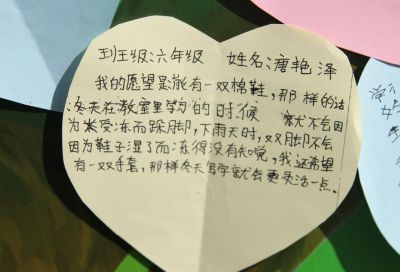 班级:六年级 姓名:唐艳泽
我的愿望是能有一双棉鞋,那样的话
冬天在教室里学习的时候 就不会因
为受冻而跺脚,下雨天时,双脚不会
因为鞋子湿了而冻得没有知觉,我还希望
有一双手套,那样冬天写字就会更灵活一点.